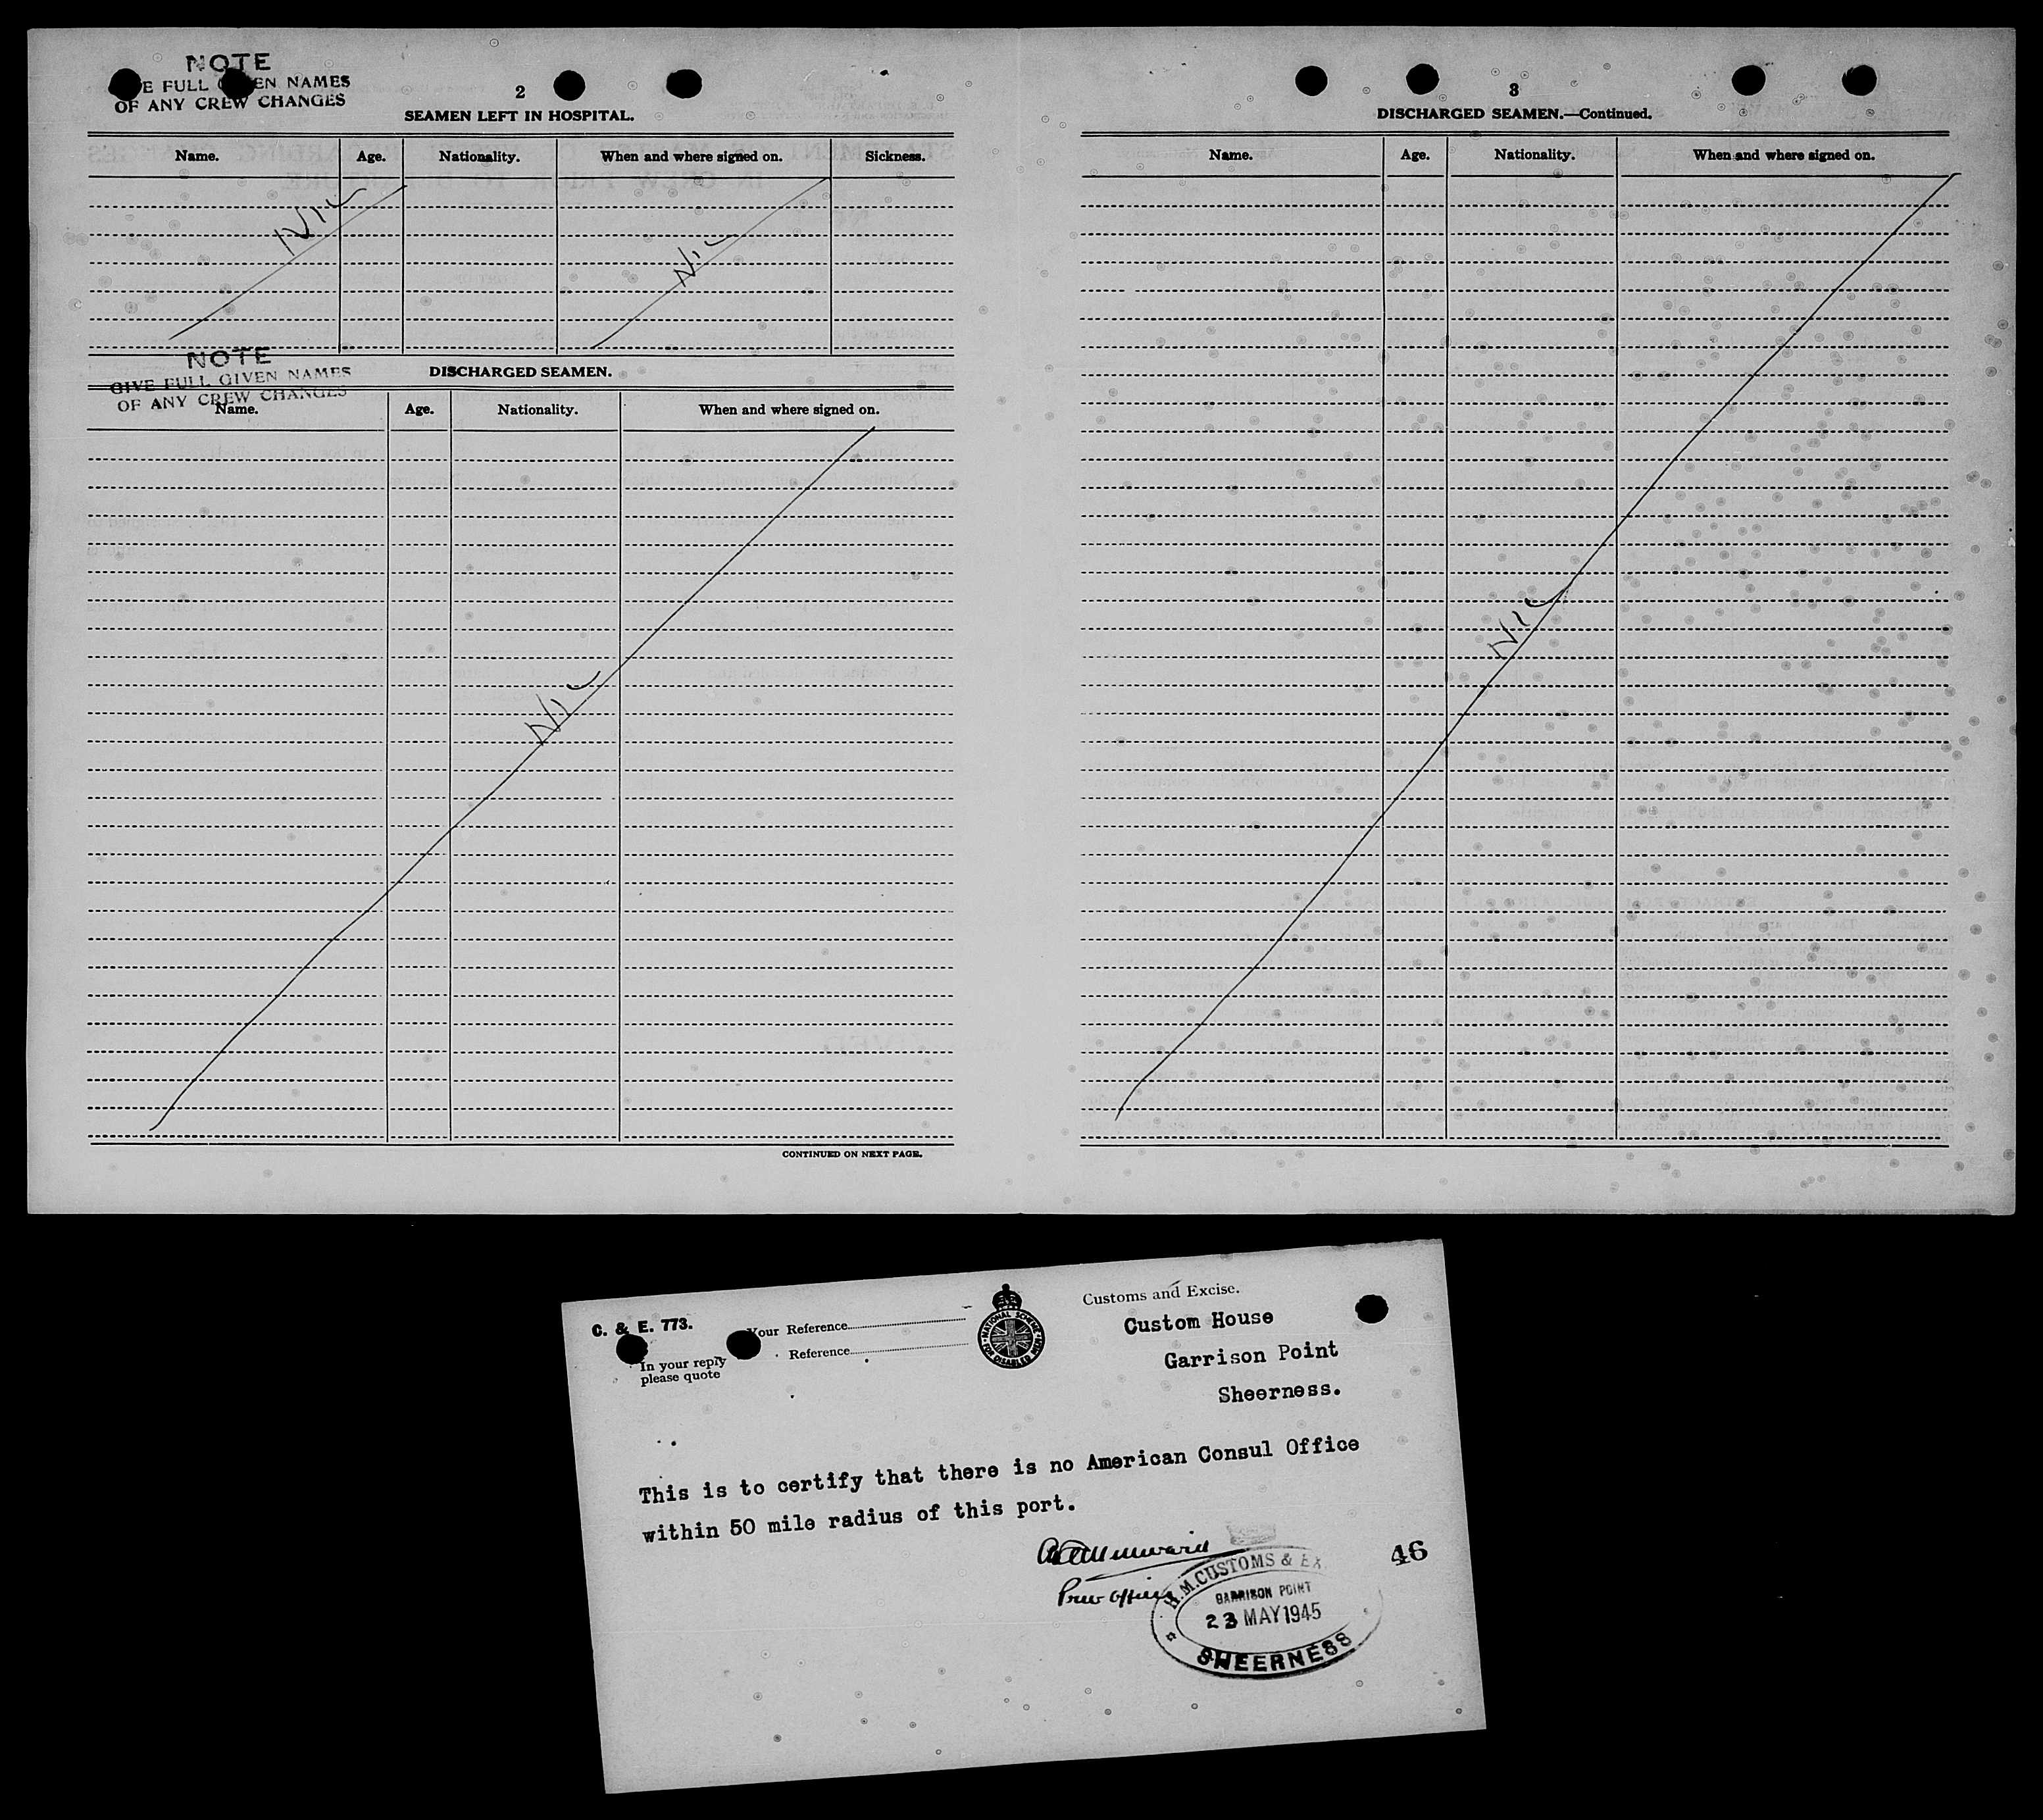 NOTE
E FULL EN NAMES
OF ANY CREW CHANGES
2
SEAMEN LEFT IN HOSPITAL.
Name. Age. Nationality. When and where signed on. Sickness.
NIL
NIL
NOTE
GIVE FULL GIVEN NAMES
OF ANY CREW CHANGES
DISCHARGED SEAMEN.
Name. Age. Nationality. When and where signed on.
NIL
CONTINUED ON NEXT PAGE.
3
DISCHARGED SEAMEN.—Continued.
Name. Age. Nationality. When and where signed on.
NIL
C. & E. 773.
Your Reference
Reference
In your reply
please quote
NATIONAL SCHEME
FOR DISABLED MEN
Customs and Excise.
Custom House
Garrison Point
Sheerness.
This is to certify that there is no American Consul Office
within 50 mile radius of this port.
H.M. CUSTOMS & EX
GARRISON POINT
23 MAY 1945
SHEERNESS
46